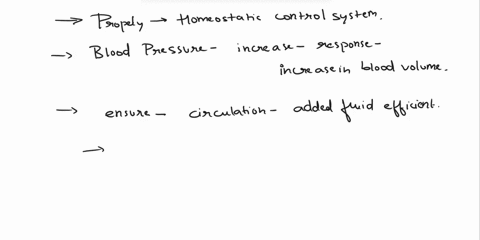 → Propely → Homeostatic control system.
→ Blood Pressure - increase - response -
increase in blood volume.
→ ensure - circulation - added fluid efficient.
→